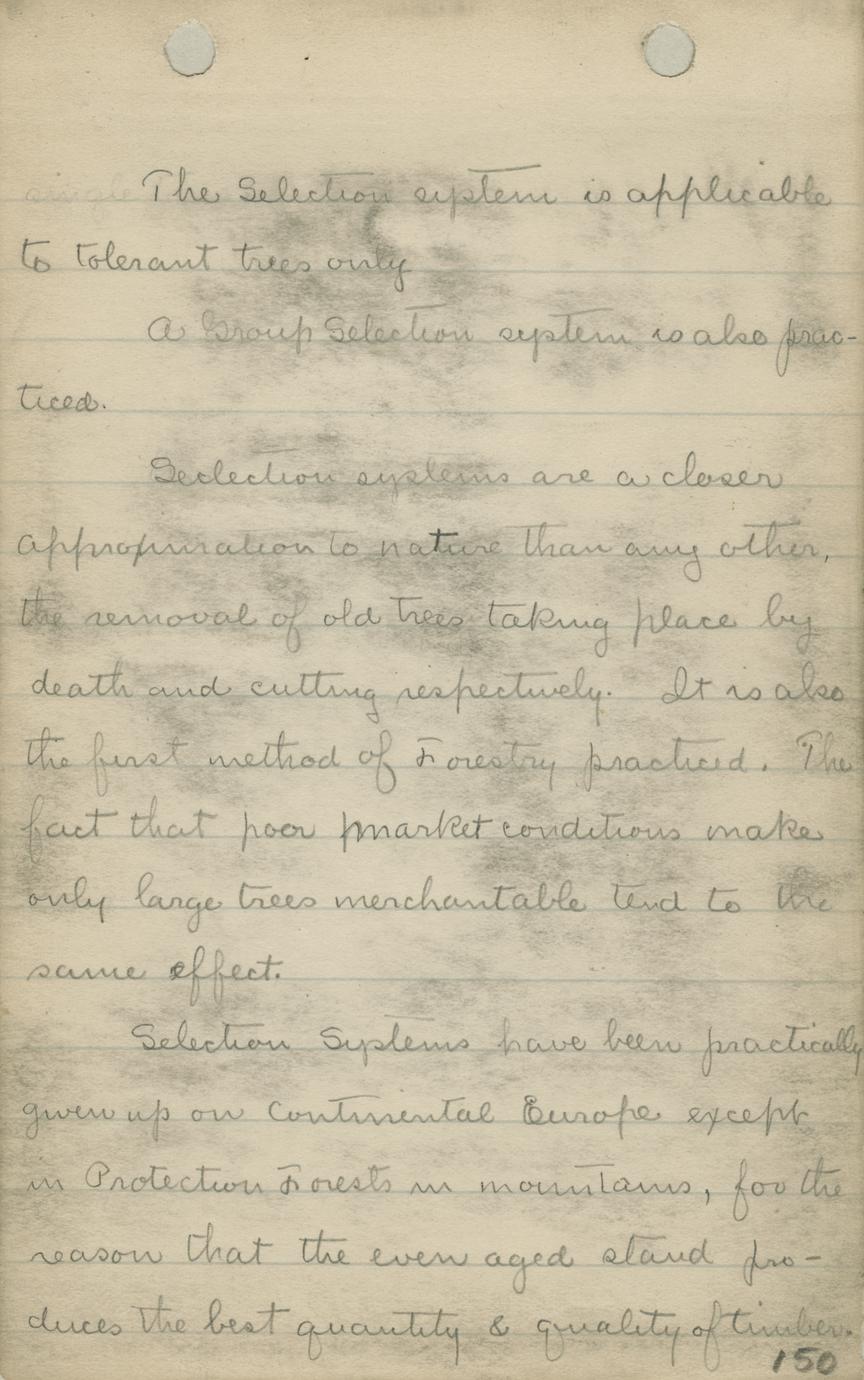 single The Selection system is applicable
to tolerant trees only
A Group Selection system is also prac-
ticed.
Seclection systems are a closer
appropination to nature than any other,
the removal of old trees taking place by
death and cutting respectively. It is also
the first method of Forestry practiced. The
fact that poor market conditions make
only large trees merchantable tend to the
same effect.
Selection Systems have been practically
given up on Continental Europe except
in Protection Forests in mountains, for the
reason that the even aged stand pro-
duces the best quantity & quality of timber.
150